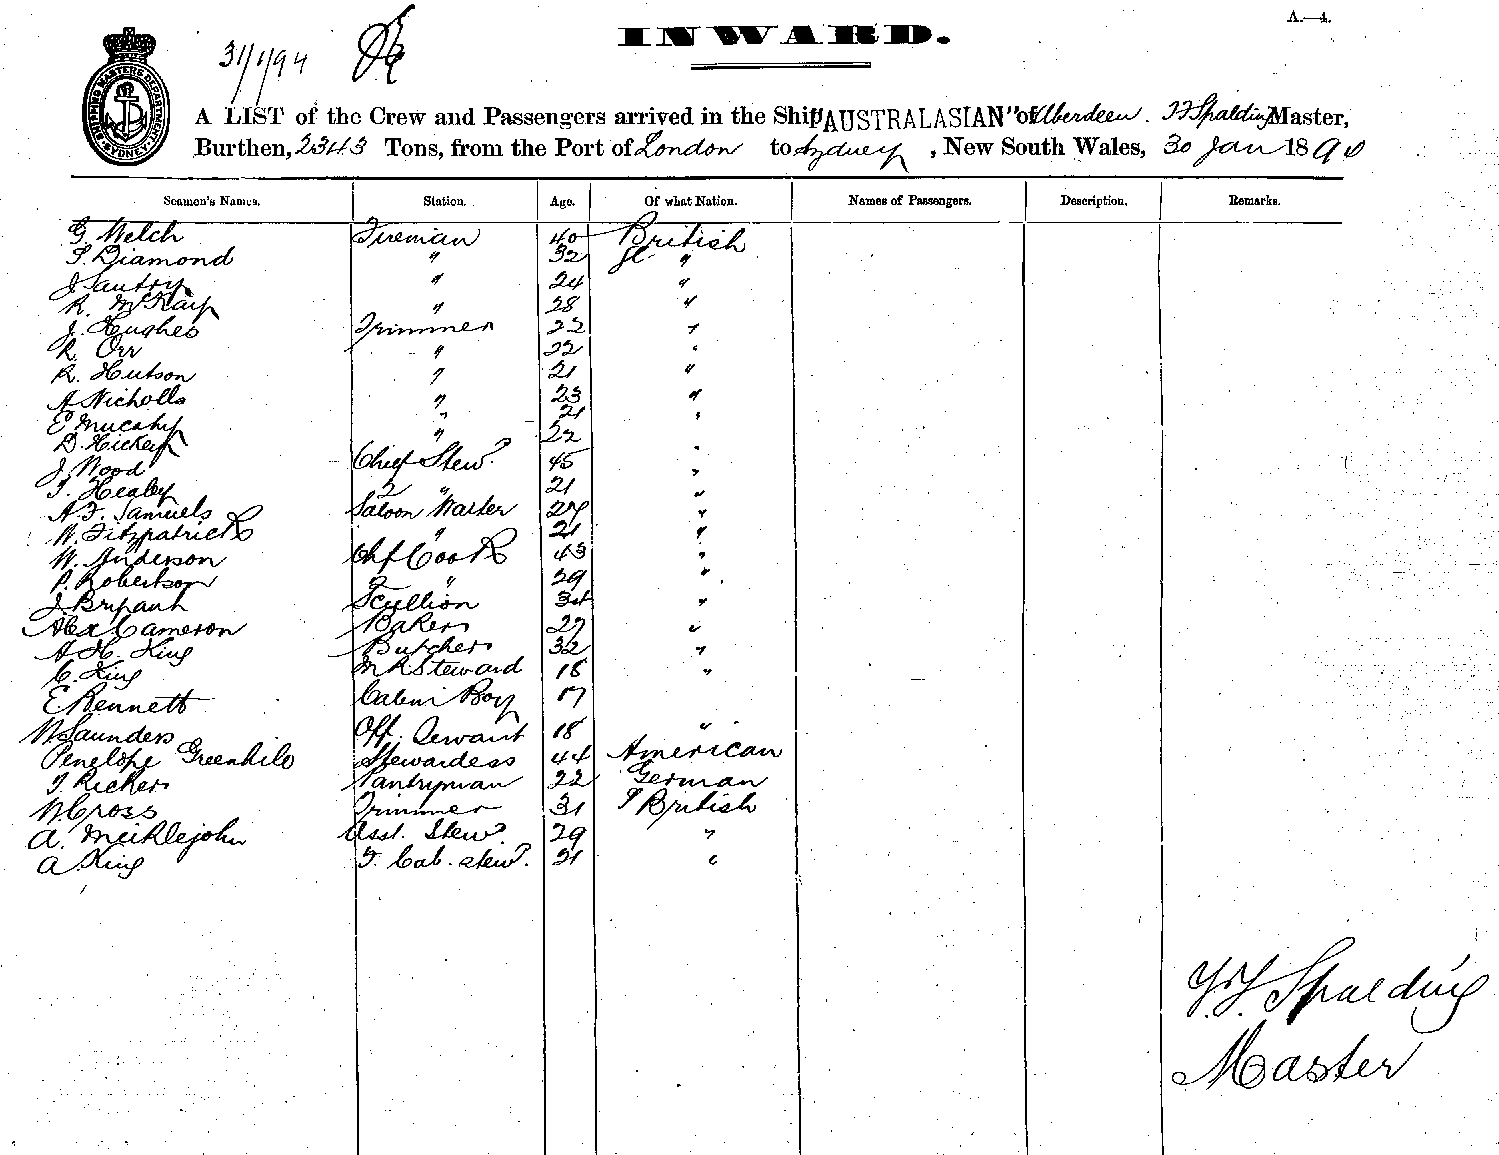 A.—4.
INWARD.
31/1/94
SHIPPING MASTERS DEPARTMENT SYDNEY
A LIST of the Crew and Passengers arrived in the Ship "AUSTRALASIAN" of Aberdeen. Spalding Master,
Burthen, 2343 Tons, from the Port of London to Sydney, New South Wales, 30 Jan 1894
Seamen's Names. Station. Age. Of what Nation. Names of Passengers. Description. Remarks.
G. Welch Fireman 40 British
Diamond " 32 "
J " 24 "
R. McKay " 28 "
J. Hughes Trimmer 22 "
R. Orr " 22 "
R. Hutson " 21 "
A Nicholls " 23 "
E Mucahy " 21 "
D. Hickey " 22
J. Wood Chief Stewd 45 "
Healey 2 " 21 "
A. F. Samuels Saloon Waiter 27 "
W. Fitzpatrick " 21 "
W. Anderson Chf Cook 43 "
P. Robertson 2 " 29 "
J. Bryant Scullion 34 "
Alex Cameron Baker 27 "
A H. King Butcher 32 "
C. King M R Steward 18 "
E Bennett Cabin Boy 17
W Saunders Off. Servant 18 "
Penelope Greenhile Stewardess 44 American
Ricker Pantryman 22 German
W. Cross Trimmer 31 British
A. Meiklejohn Asst. Stewd. 29 "
A King F. Cab. Stewd. 21 "
Spalding
Master